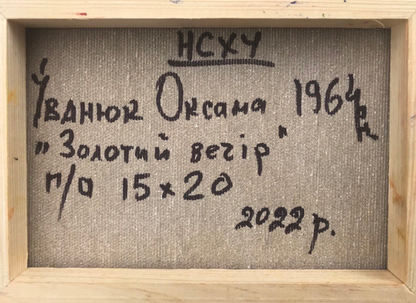 НСХУ
Іванюк Оксана 1964 р.н.
"Золотий вечір"
п/о 15x20
2022 р.